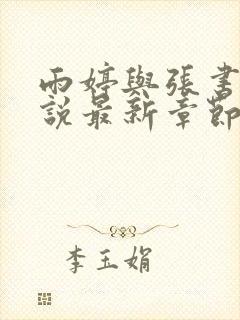 雨婷與張書
說最新章節
李玉娟